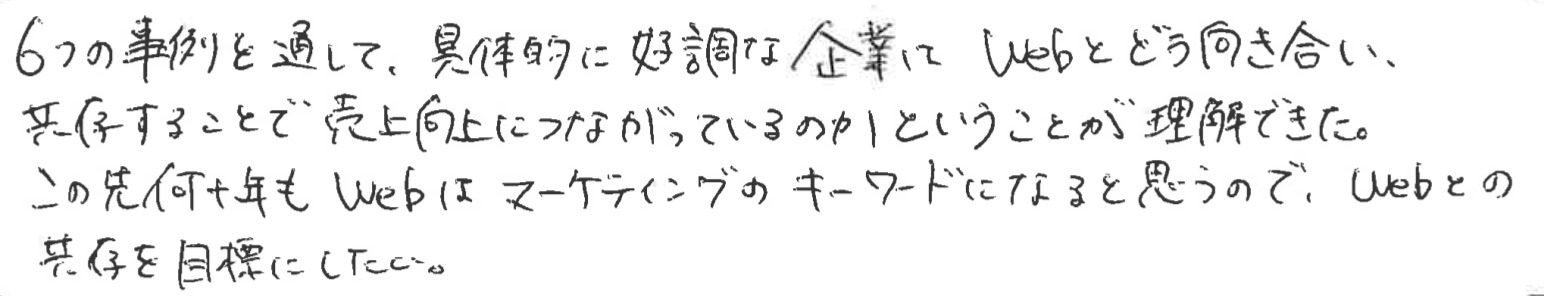 6つの事例を通して、具体的に好調な企業はWebとどう向き合い、
共存することで売上向上につながっているのかということが理解できた。
この先何十年もWebはマーケティングのキーワードになると思うので、Webとの
共存を目標にしたい。